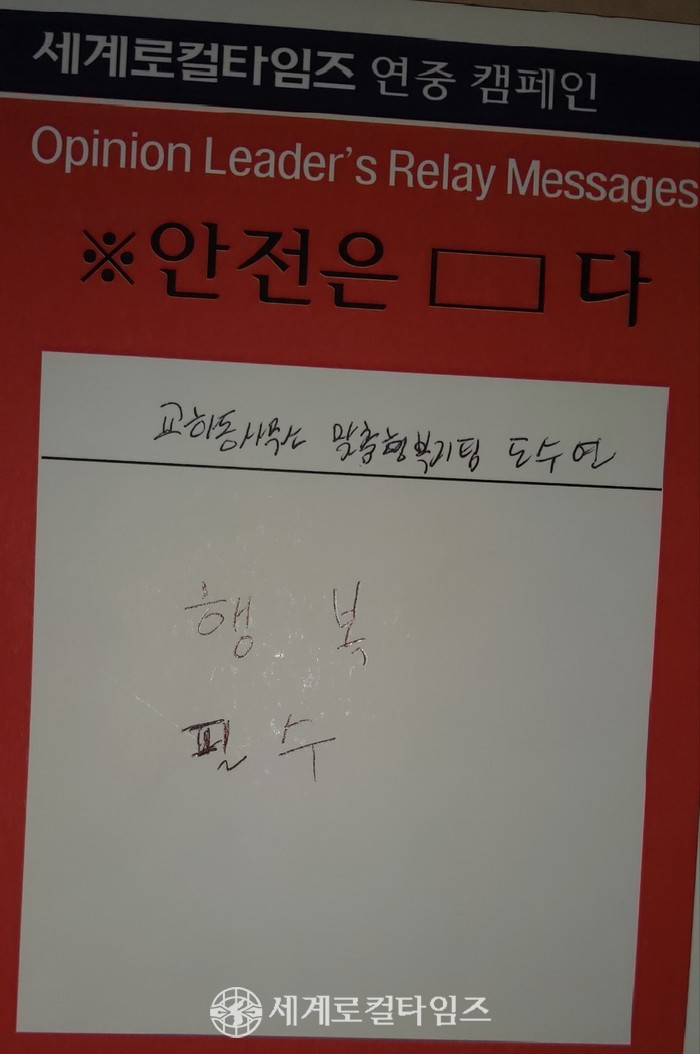 세계로컬타임즈 연중 캠페인
Opinion Leader's Relay Messages
※안전은 □ 다
교하동사무소 맞춤형복지팀 도수연
행 복
필 수
세계로컬타임즈